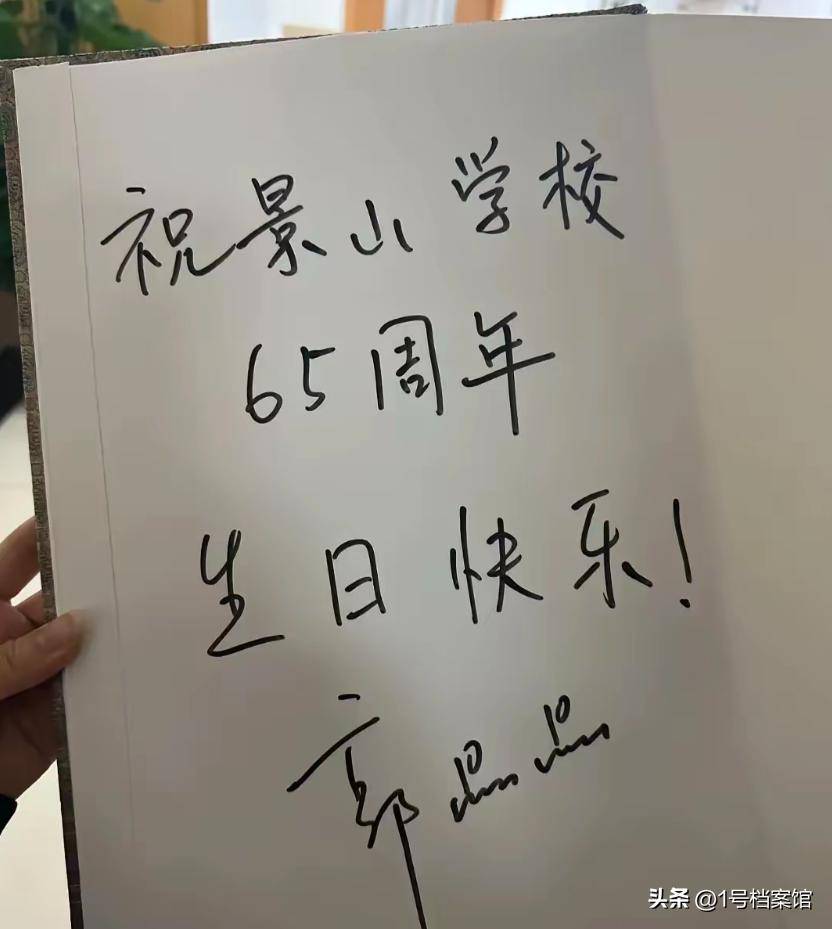 祝景山学校
65周年
生日快乐!
郭晶晶
头条 @1号档案馆